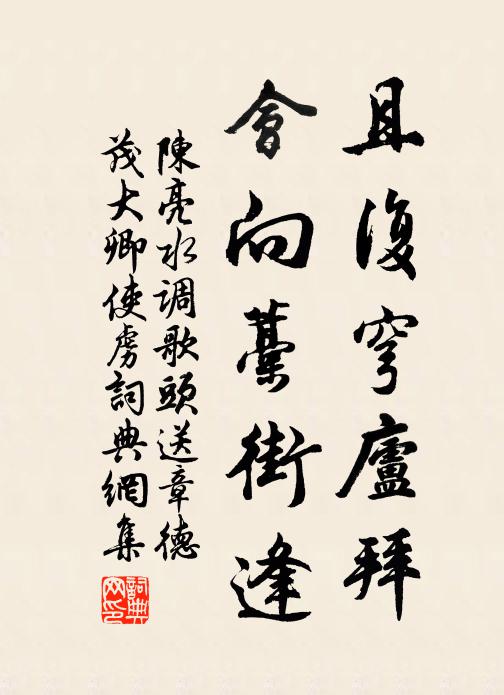 且復穹廬拜
會向藁街逢
陳亮水調歌頭送章德
茂大卿使虜詞典網集
詞典網印